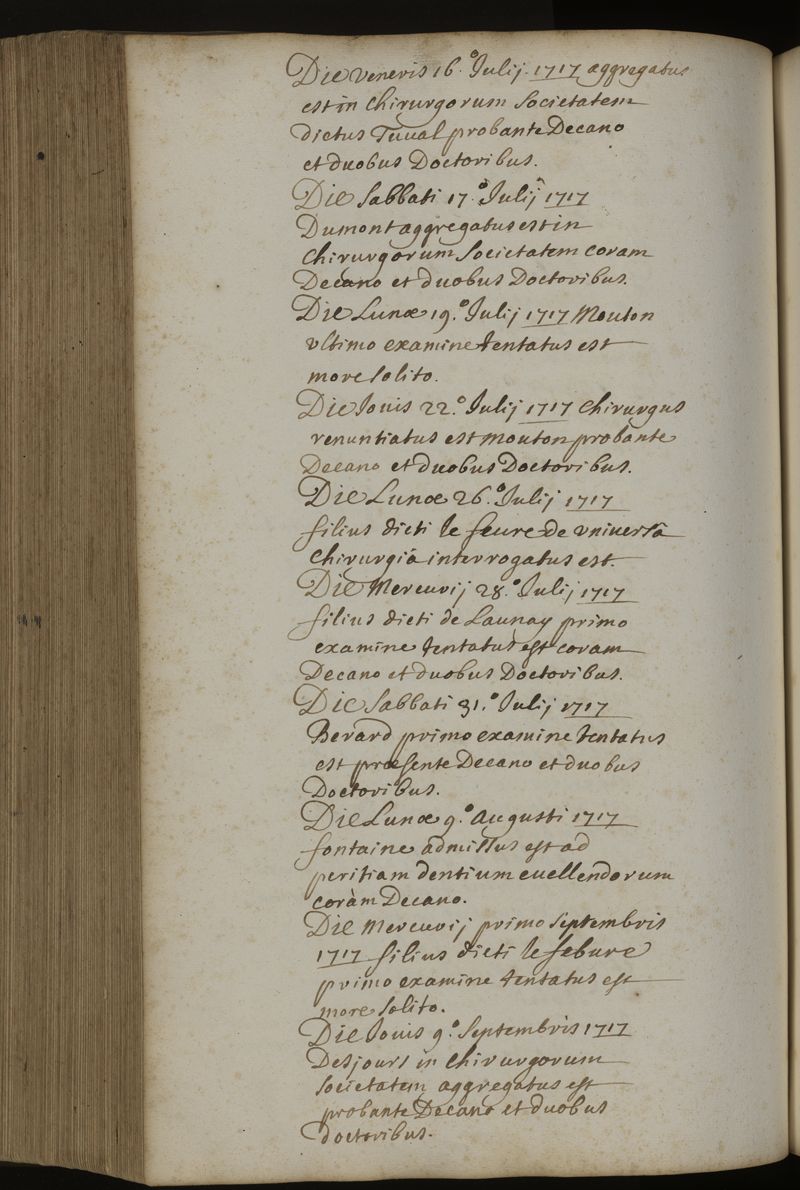 Die Veneris 16.º Julij 1717 aggregatus
est in Chirurgorum Societatem
dictus Tuual probante Decano
et duobus Doctoribus.
Die Sabbati 17.º Julij 1717
Dumont aggregatus est in
Chirurgorum Societatem coram
Decano et duobus Doctoribus.
Die Lunæ 19.º Julij 1717 Mouton
vltimo examine tentatus est
more solito.
Die Jouis 22.º Julij 1717 Chirurgus
renuntiatus est Mouton probante
Decano et duobus Doctoribus.
Die Lunæ 26.º Julij 1717
filius dicti le feure de vniuersâ
Chirurgiâ interrogatus est.
Die Mercurij 28.º Julij 1717
filius dicti de Launay primo
examine tentatus est coram
Decano et duobus Doctoribus.
Die Sabbati 31.º Julij 1717
Berard primo examine tentatus
est præsente Decano et duobus
Doctoribus.
Die Lunæ 9.º Augusti 1717
fontaine admissus est ad
peritiam dentium euellendorum
coràm Decano.
Die Mercurij primo Septembris
1717 filius dicti le febure
primo examine tentatus est
more solito.
Die Jouis 9.º Septembris 1717
Desjours in Chirurgorum
Societatem aggregatus est
probante Decano et duobus
doctoribus.